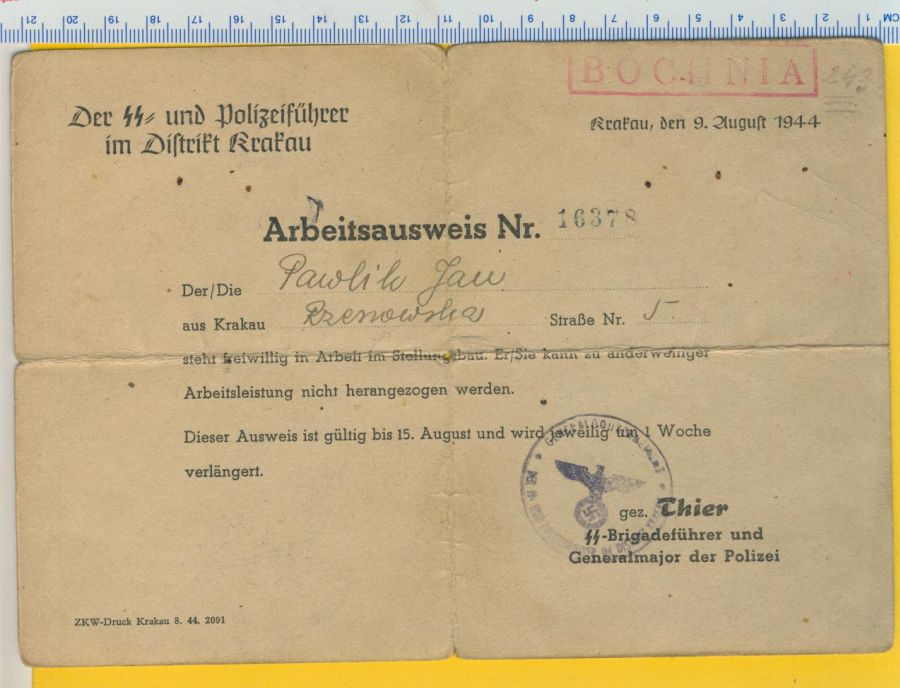 CM 1 2 3 4 5 6 7 8 9 10 11 12 13 14 15 16 17 18 19 20 21
BOCHNIA
243
Der SS- und Polizeiführer
im Distrikt Krakau
Krakau, den 9. August 1944
Arbeitsausweis Nr. 16378
Der/Die Pawlik Jan
aus Krakau Rzenowska Straße Nr. 5
steht freiwillig in Arbeit im Stellungsbau. Er/Sie kann zu anderweitiger
Arbeitsleistung nicht herangezogen werden.
Dieser Ausweis ist gültig bis 15. August und wird jeweilig um 1 Woche
verlängert.
gez. Thier
SS-Brigadeführer und
Generalmajor der Polizei
ZKW-Druck Krakau 8. 44. 2091